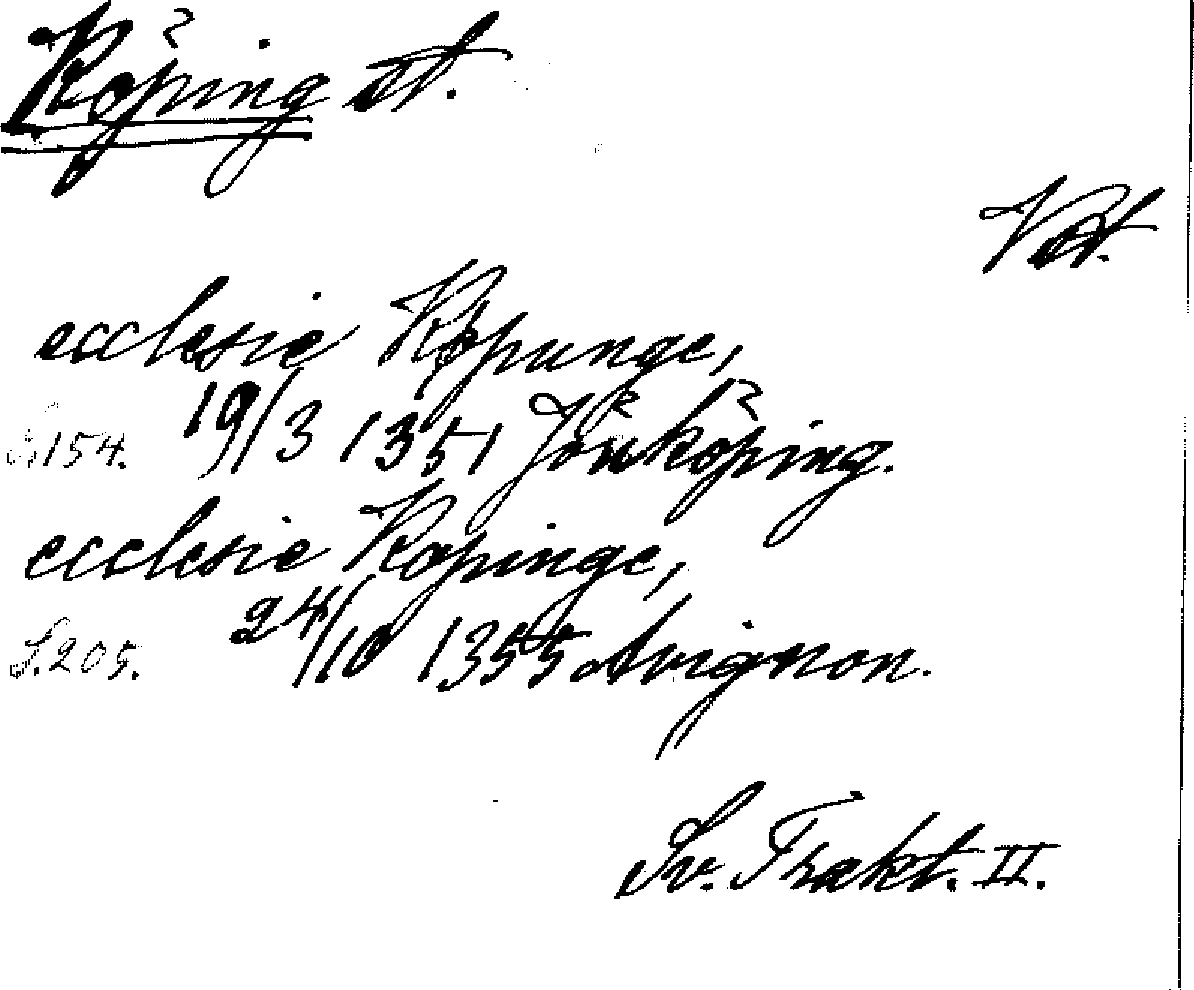 Köping st.
Vst.
ecclesie Köpunge,
S.154. 19/3 1351 Jönköping.
ecclesie Kopinge,
S.205. 24/10 1355 Avignon.
Sv. Trakt. II.